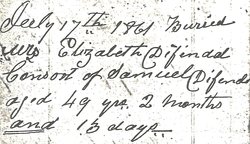 July 17th 1861 Buried
Mrs Elizabeth Difendal
Consort of Samuel Difenda
aged 49 yrs. 2 months
and 13 days